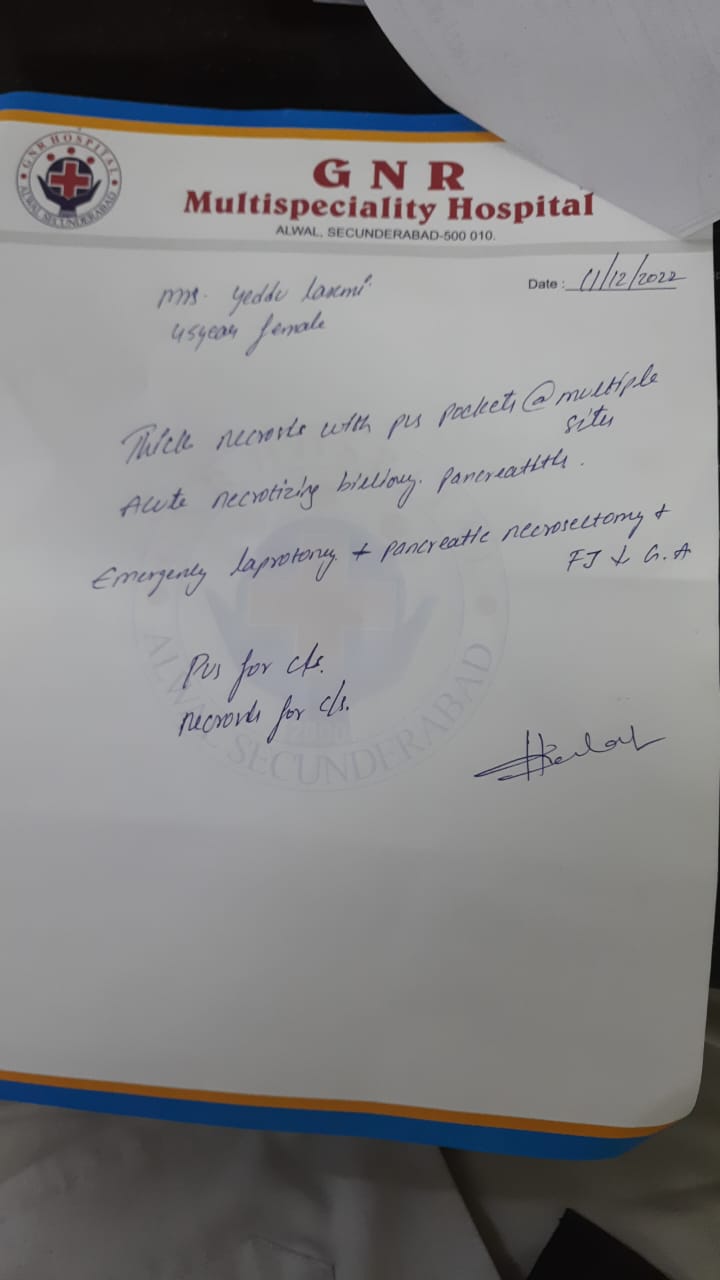 GNR HOSPITAL
ALWAL SECUNDERABAD
G N R
Multispeciality Hospital
ALWAL, SECUNDERABAD-500 010.
Date : 11/12/2022
Mrs. Yeddu Laxmi
45year female
Thick necrosis with pus pockets @ multiple
sites
Acute necrotizing billiary. pancreatitis.
Emergency laprotomy + pancreatic necrosectomy +
FJ ↓ G.A
Pus for c/s.
necrosis for c/s.
ALWAL SECUNDERABAD